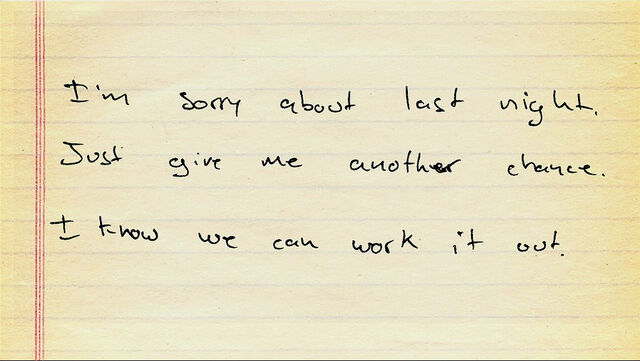 I'm sorry about last night.
Just give me another chance.
I know we can work it out.